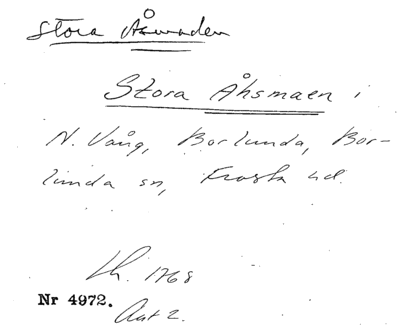 Stora Åsmaden
Stora Åhsmaen i
N. Vång, Borlunda, Bor-
lunda sn, Frosta hd.
Lh. 1768
Nr 4972.
Akt 2.